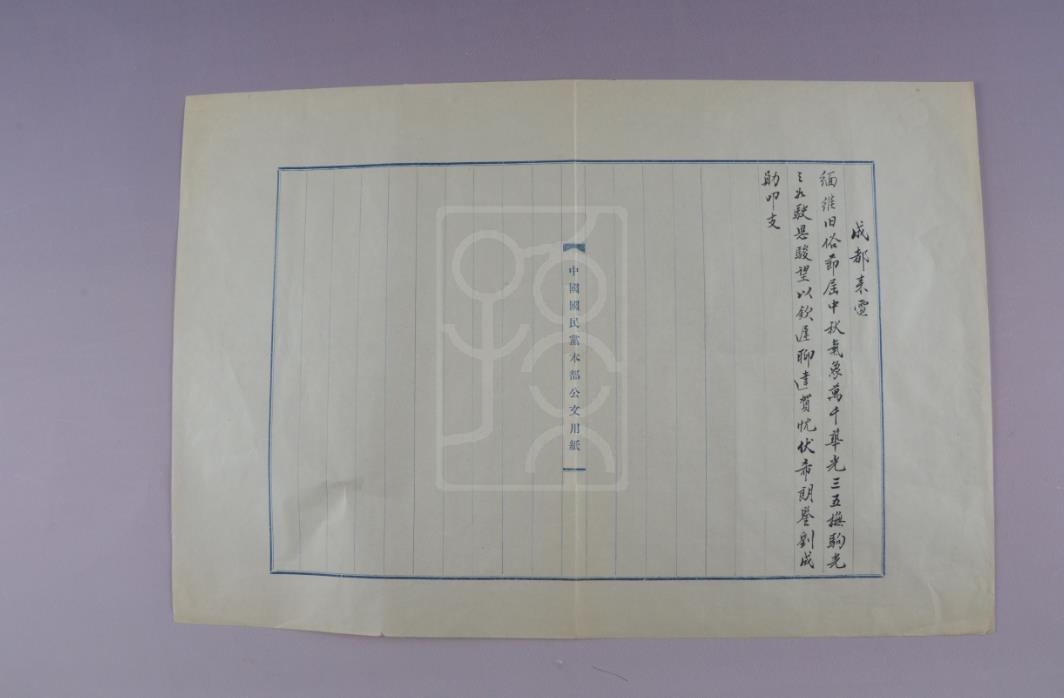 成都来電
緬維旧俗節届中秋氣象萬千華光三五撫駒光
之如駛思駿望以欽遲聊達賀忱伏希朗鑒劉成
勛叩支
中國國民黨本部公文用紙